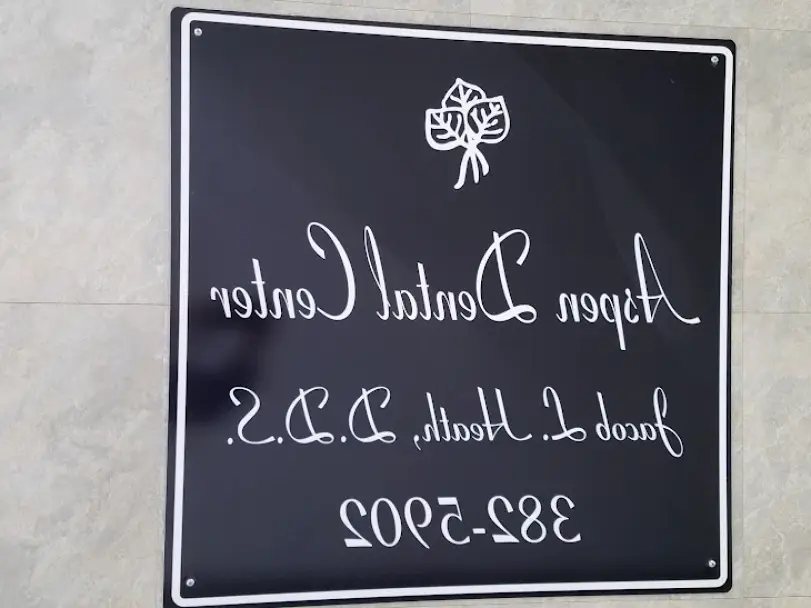 Aspen Dental Center
Jacob L. Heath, D.D.S.
382-5902